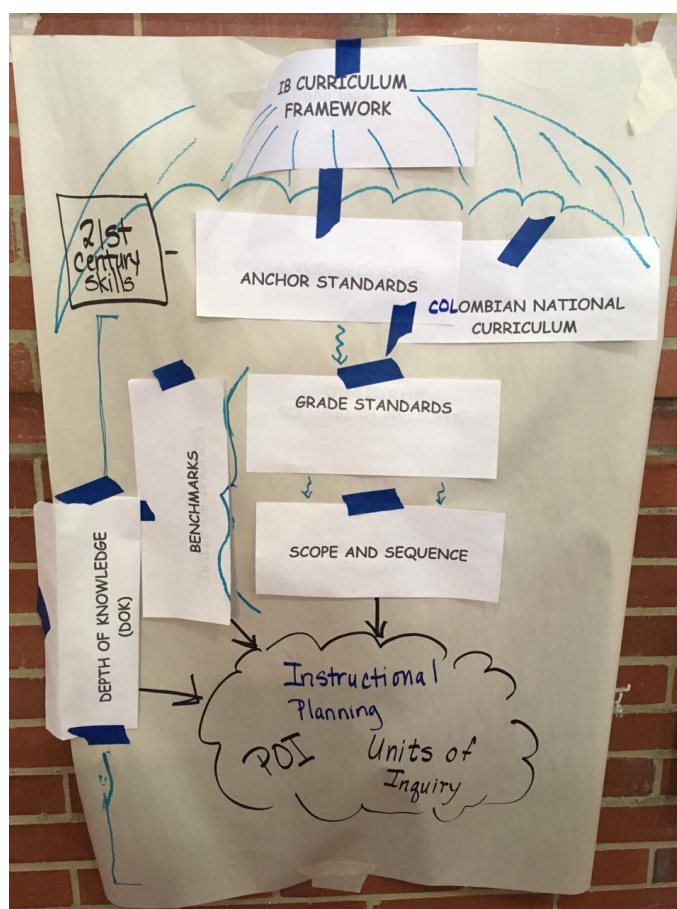 IB CURRICULUM
FRAMEWORK
21st
century
skills
ANCHOR STANDARDS
COLOMBIAN NATIONAL
CURRICULUM
GRADE STANDARDS
BENCHMARKS
SCOPE AND SEQUENCE
DEPTH OF KNOWLEDGE
(DOK)
Instructional
Planning
POI
Units of
Inquiry